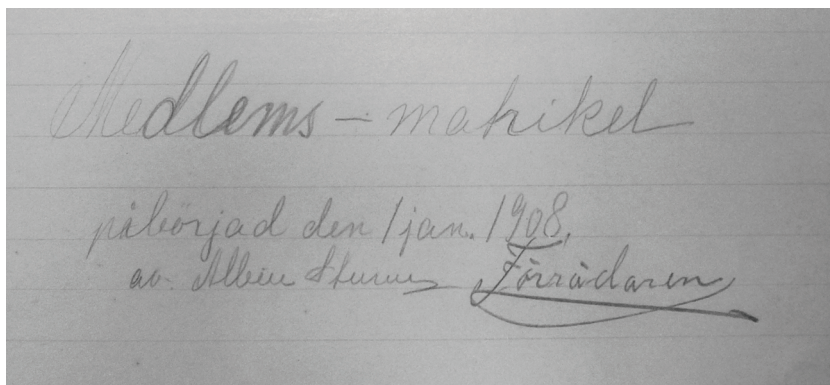 Medlems - matrikel
påbörjad den 1 jan. 1908.
av. Albin Förrädaren